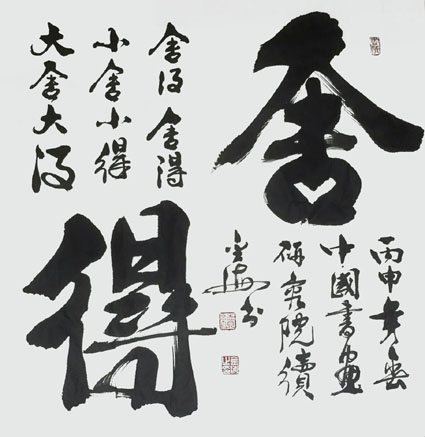 舍
得
舍得舍得
小舍小得
大舍大得
丙申年春
中國書畫
研究院續
海书